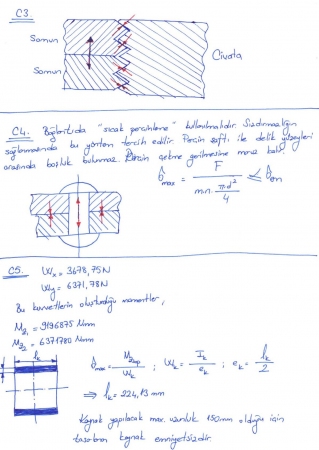 C3.
Somun
Somun
Civata
C4. Bağlantıda "sıcak perçinleme" kullanılmalıdır. Sızdırmazlığın
sağlanmasında bu yöntem tercih edilir. Perçin şaftı ile delik yüzeyleri
arasında boşluk bulunmaz. Perçin çekme gerilmesine maruz kalır.
σmax = F / (m.n. π.d² / 4) ≤ σem
C5. Wx = 3678,75N
Wy = 6371,78N
Bu kuvvetlerin oluşturduğu momentler,
M₂₁ = 9196875 Nmm
M₂₂ = 6371780 Nmm
lk
σmax = M₂top / Wk ; Wk = Ik / ek ; ek = lk / 2
⇒ lk = 224,13 mm
Kaynak yapılacak max. uzunluk 150mm olduğu için
tasarlanan kaynak emniyetsizdir.